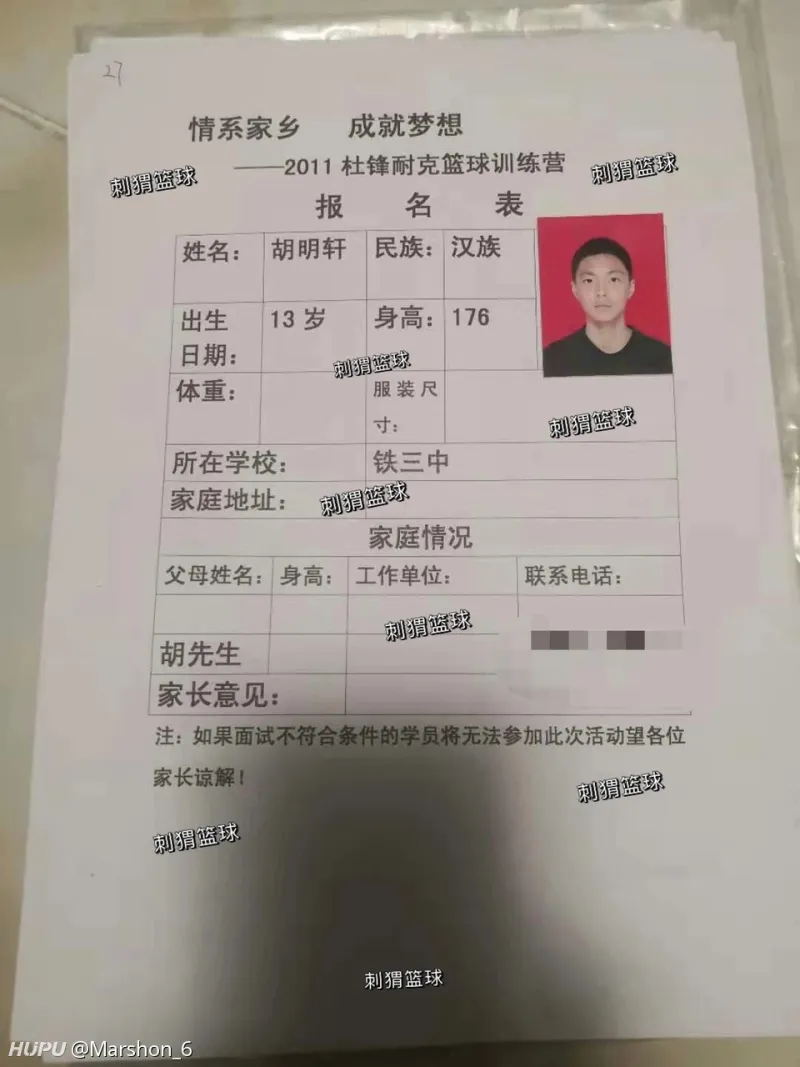 27
情系家乡 成就梦想
——2011 杜锋耐克篮球训练营
刺猬篮球 刺猬篮球
报 名 表
姓名： 胡明轩 民族： 汉族
出生 13 岁 身高： 176
日期：
刺猬篮球
体重： 服装尺
寸：
刺猬篮球
所在学校： 铁三中
家庭地址：
刺猬篮球
家庭情况
父母姓名： 身高： 工作单位： 联系电话：
刺猬篮球
胡先生
家长意见：
注：如果面试不符合条件的学员将无法参加此次活动望各位
家长谅解！
刺猬篮球
刺猬篮球
刺猬篮球
HUPU @Marshon_6